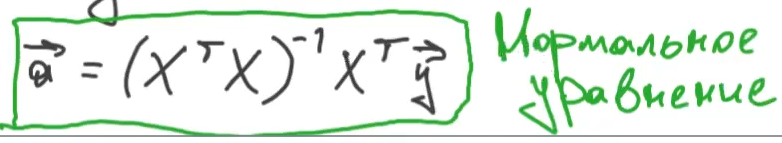 a⃗ = (XᵀX)⁻¹ Xᵀy⃗
Нормальное
уравнение